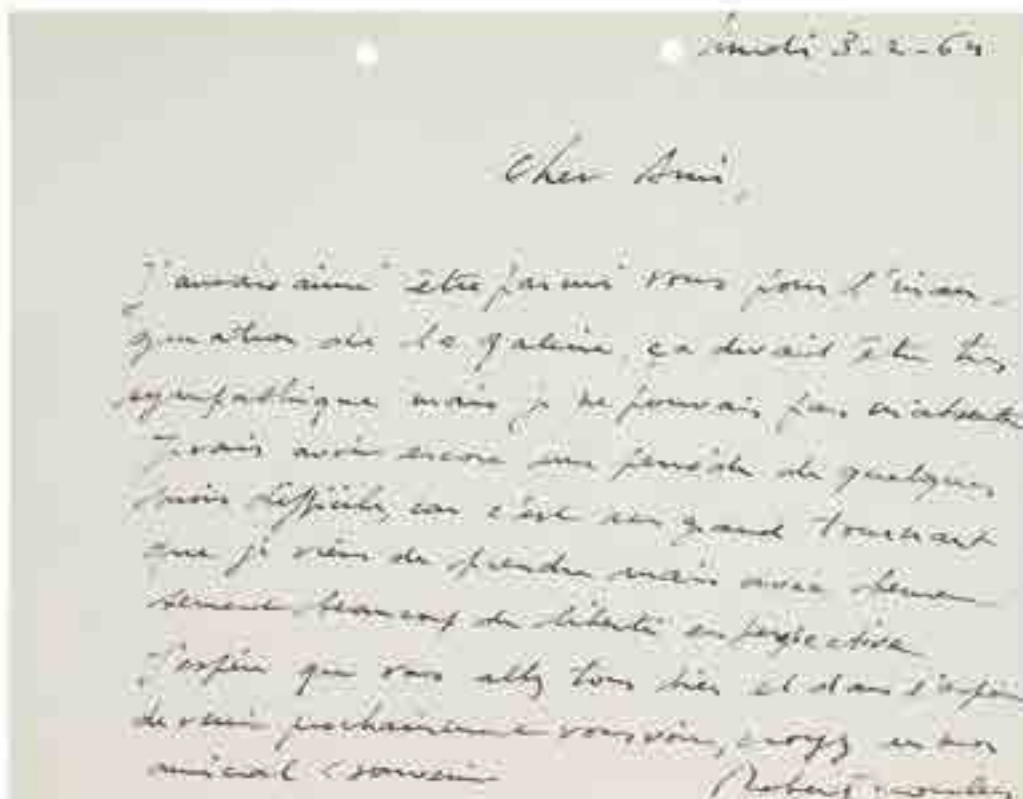 Lundi 3-2-64
Cher Ami,
J'aurais aimé être parmi vous pour l'inau-
guration de la galerie, ça devait être très
sympathique mais je ne pouvais pas m'absenter
Je vais avoir encore une période de quelques
mois difficiles, car c'est un grand tournant
que je viens de prendre mais avec heureu-
sement beaucoup de liberté en perspective
J'espère que vous allez tous bien et dans l'espoir
de venir prochainement vous voir, croyez en mon
amical souvenir
Robert